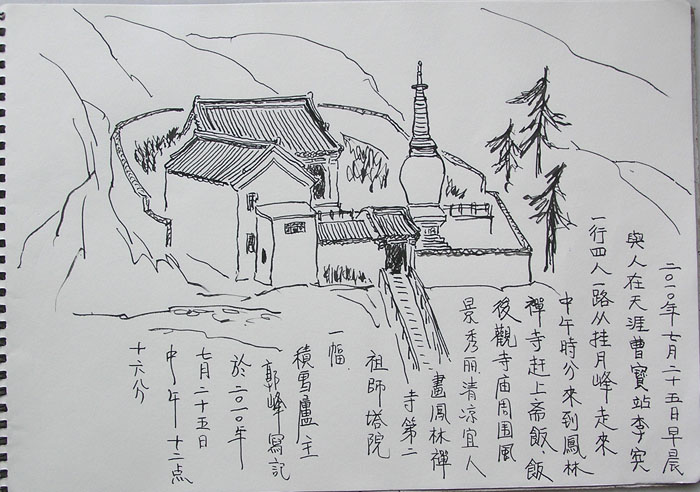 二〇一〇年七月二十五日早晨
與人在天涯曹寶站李实
一行四人一路从挂月峰走来
中午時分來到鳳林
禪寺赶上斋飯、飯
後觀寺庙周围風
景秀丽清凉宜人
畫鳳林禪
寺第二
祖師塔院
一幅
積雪廬主
郭峰寫記
於二〇一〇年
七月二十五日
中午十二点
十六分